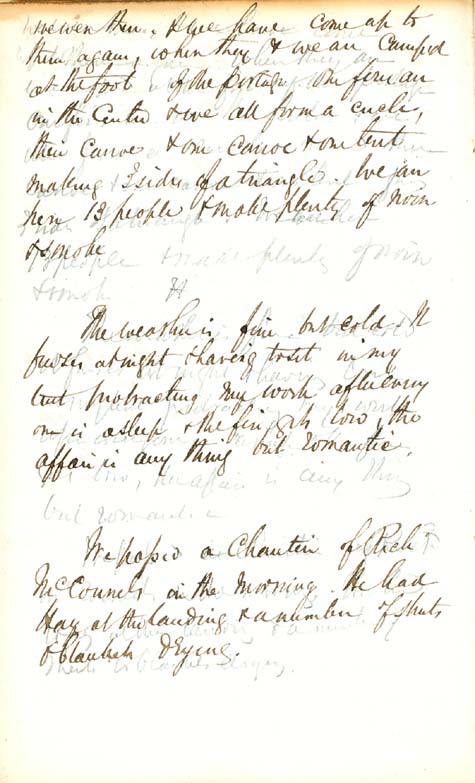 we were there. & we have come up to
them again, when they & we are Camped
at the foot of the Portage. The fires are
in the Centre & we all form a circle,
their Canoe & our Canoe & our tent
making 3 sides of a triangle. We are
here 13 people & make plenty of noise
& smoke
The weather is fine but cold. It
freezes at night & having to sit in my
tent protracting my work after every
one is asleep & the fire gets low, the
affair is any thing but romantic.
We passed a Chantier of Rich^d
McConnel in the Morning. He had
Hay at the landing & a number of shirts
& blankets drying.